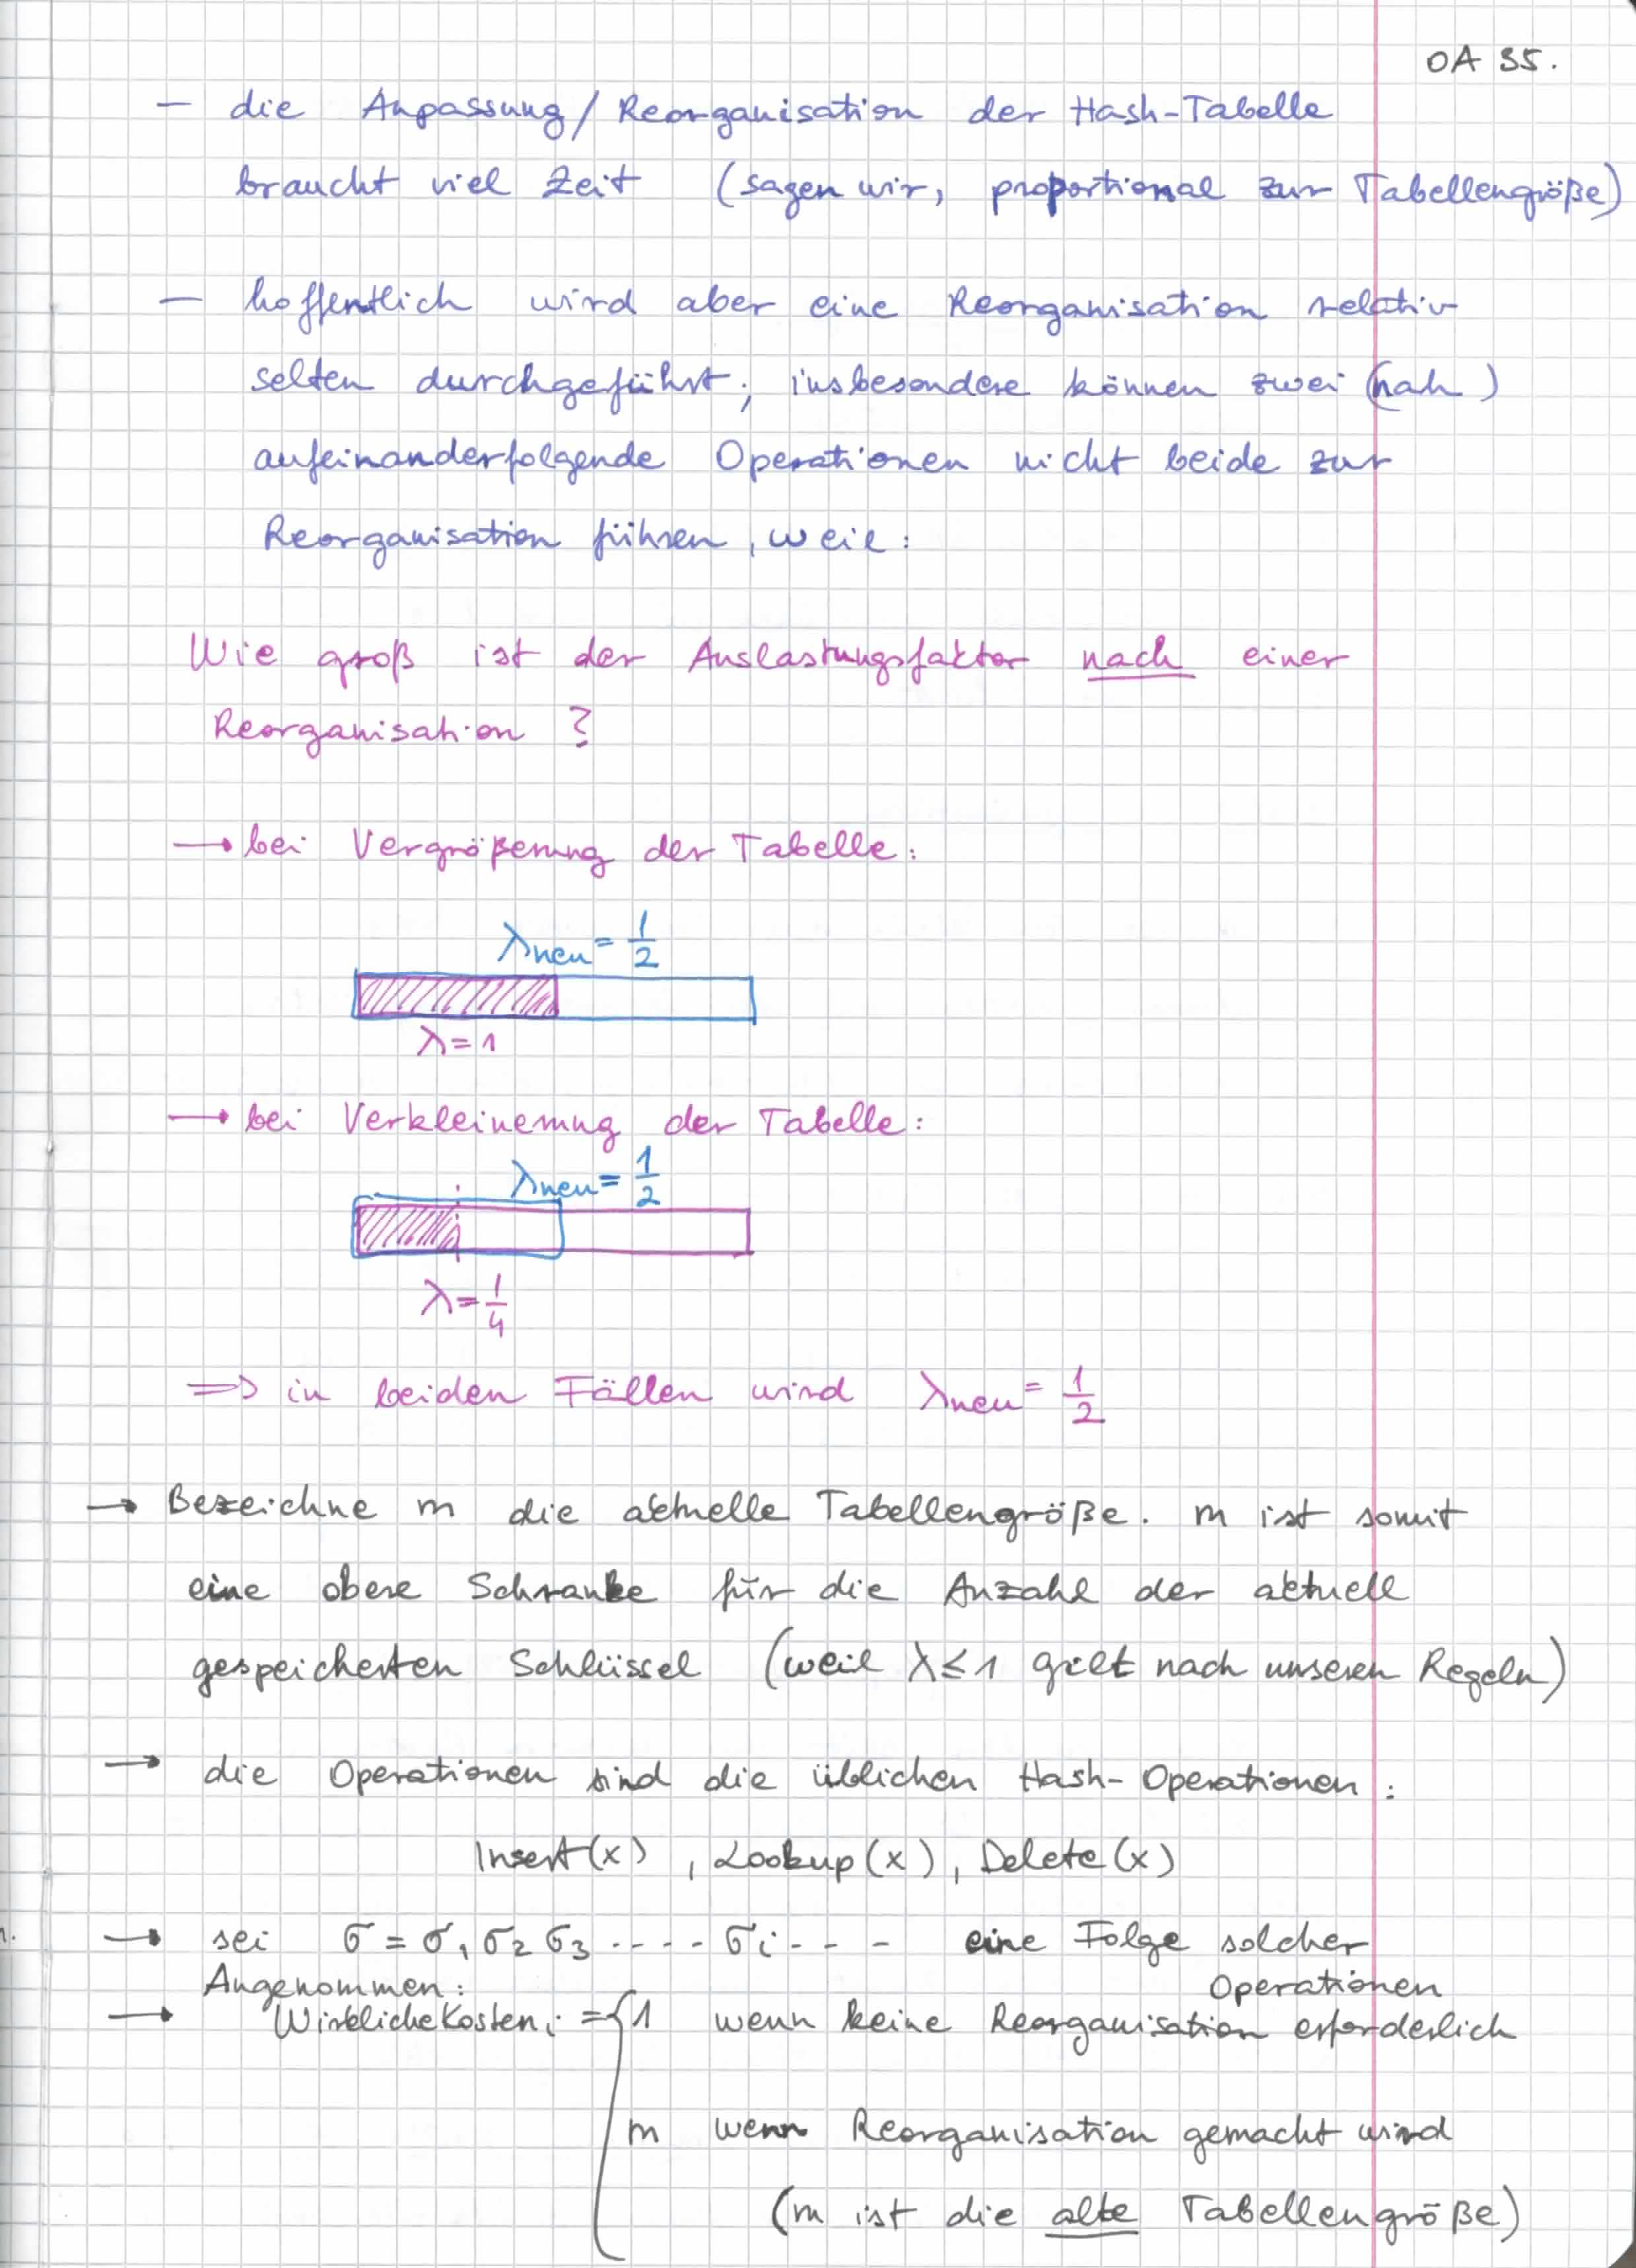 OA 35.
– die Anpassung/Reorganisation der Hash-Tabelle
braucht viel Zeit (sagen wir, proportional zur Tabellengröße)
– hoffentlich wird aber eine Reorganisation relativ
selten durchgeführt; insbesondere können zwei (nah)
aufeinanderfolgende Operationen nicht beide zur
Reorganisation führen, weil:
Wie groß ist der Auslastungsfaktor nach einer
Reorganisation ?
→ bei Vergrößerung der Tabelle:
λneu = 1/2
λ = 1
→ bei Verkleinerung der Tabelle:
λneu = 1/2
λ = 1/4
⇒ in beiden Fällen wird λneu = 1/2
→ Bezeichne m die aktuelle Tabellengröße. m ist somit
eine obere Schranke für die Anzahl der aktuell
gespeicherten Schlüssel (weil λ ≤ 1 gilt nach unseren Regeln)
→ die Operationen sind die üblichen Hash-Operationen:
Insert(x), Lookup(x), Delete(x)
→ sei σ = σ1 σ2 σ3 ---- σi --- eine Folge solcher
Operationen
Angenommen:
→ WirklicheKosteni := { 1 wenn keine Reorganisation erforderlich
m wenn Reorganisation gemacht wird
(m ist die alte Tabellengröße)